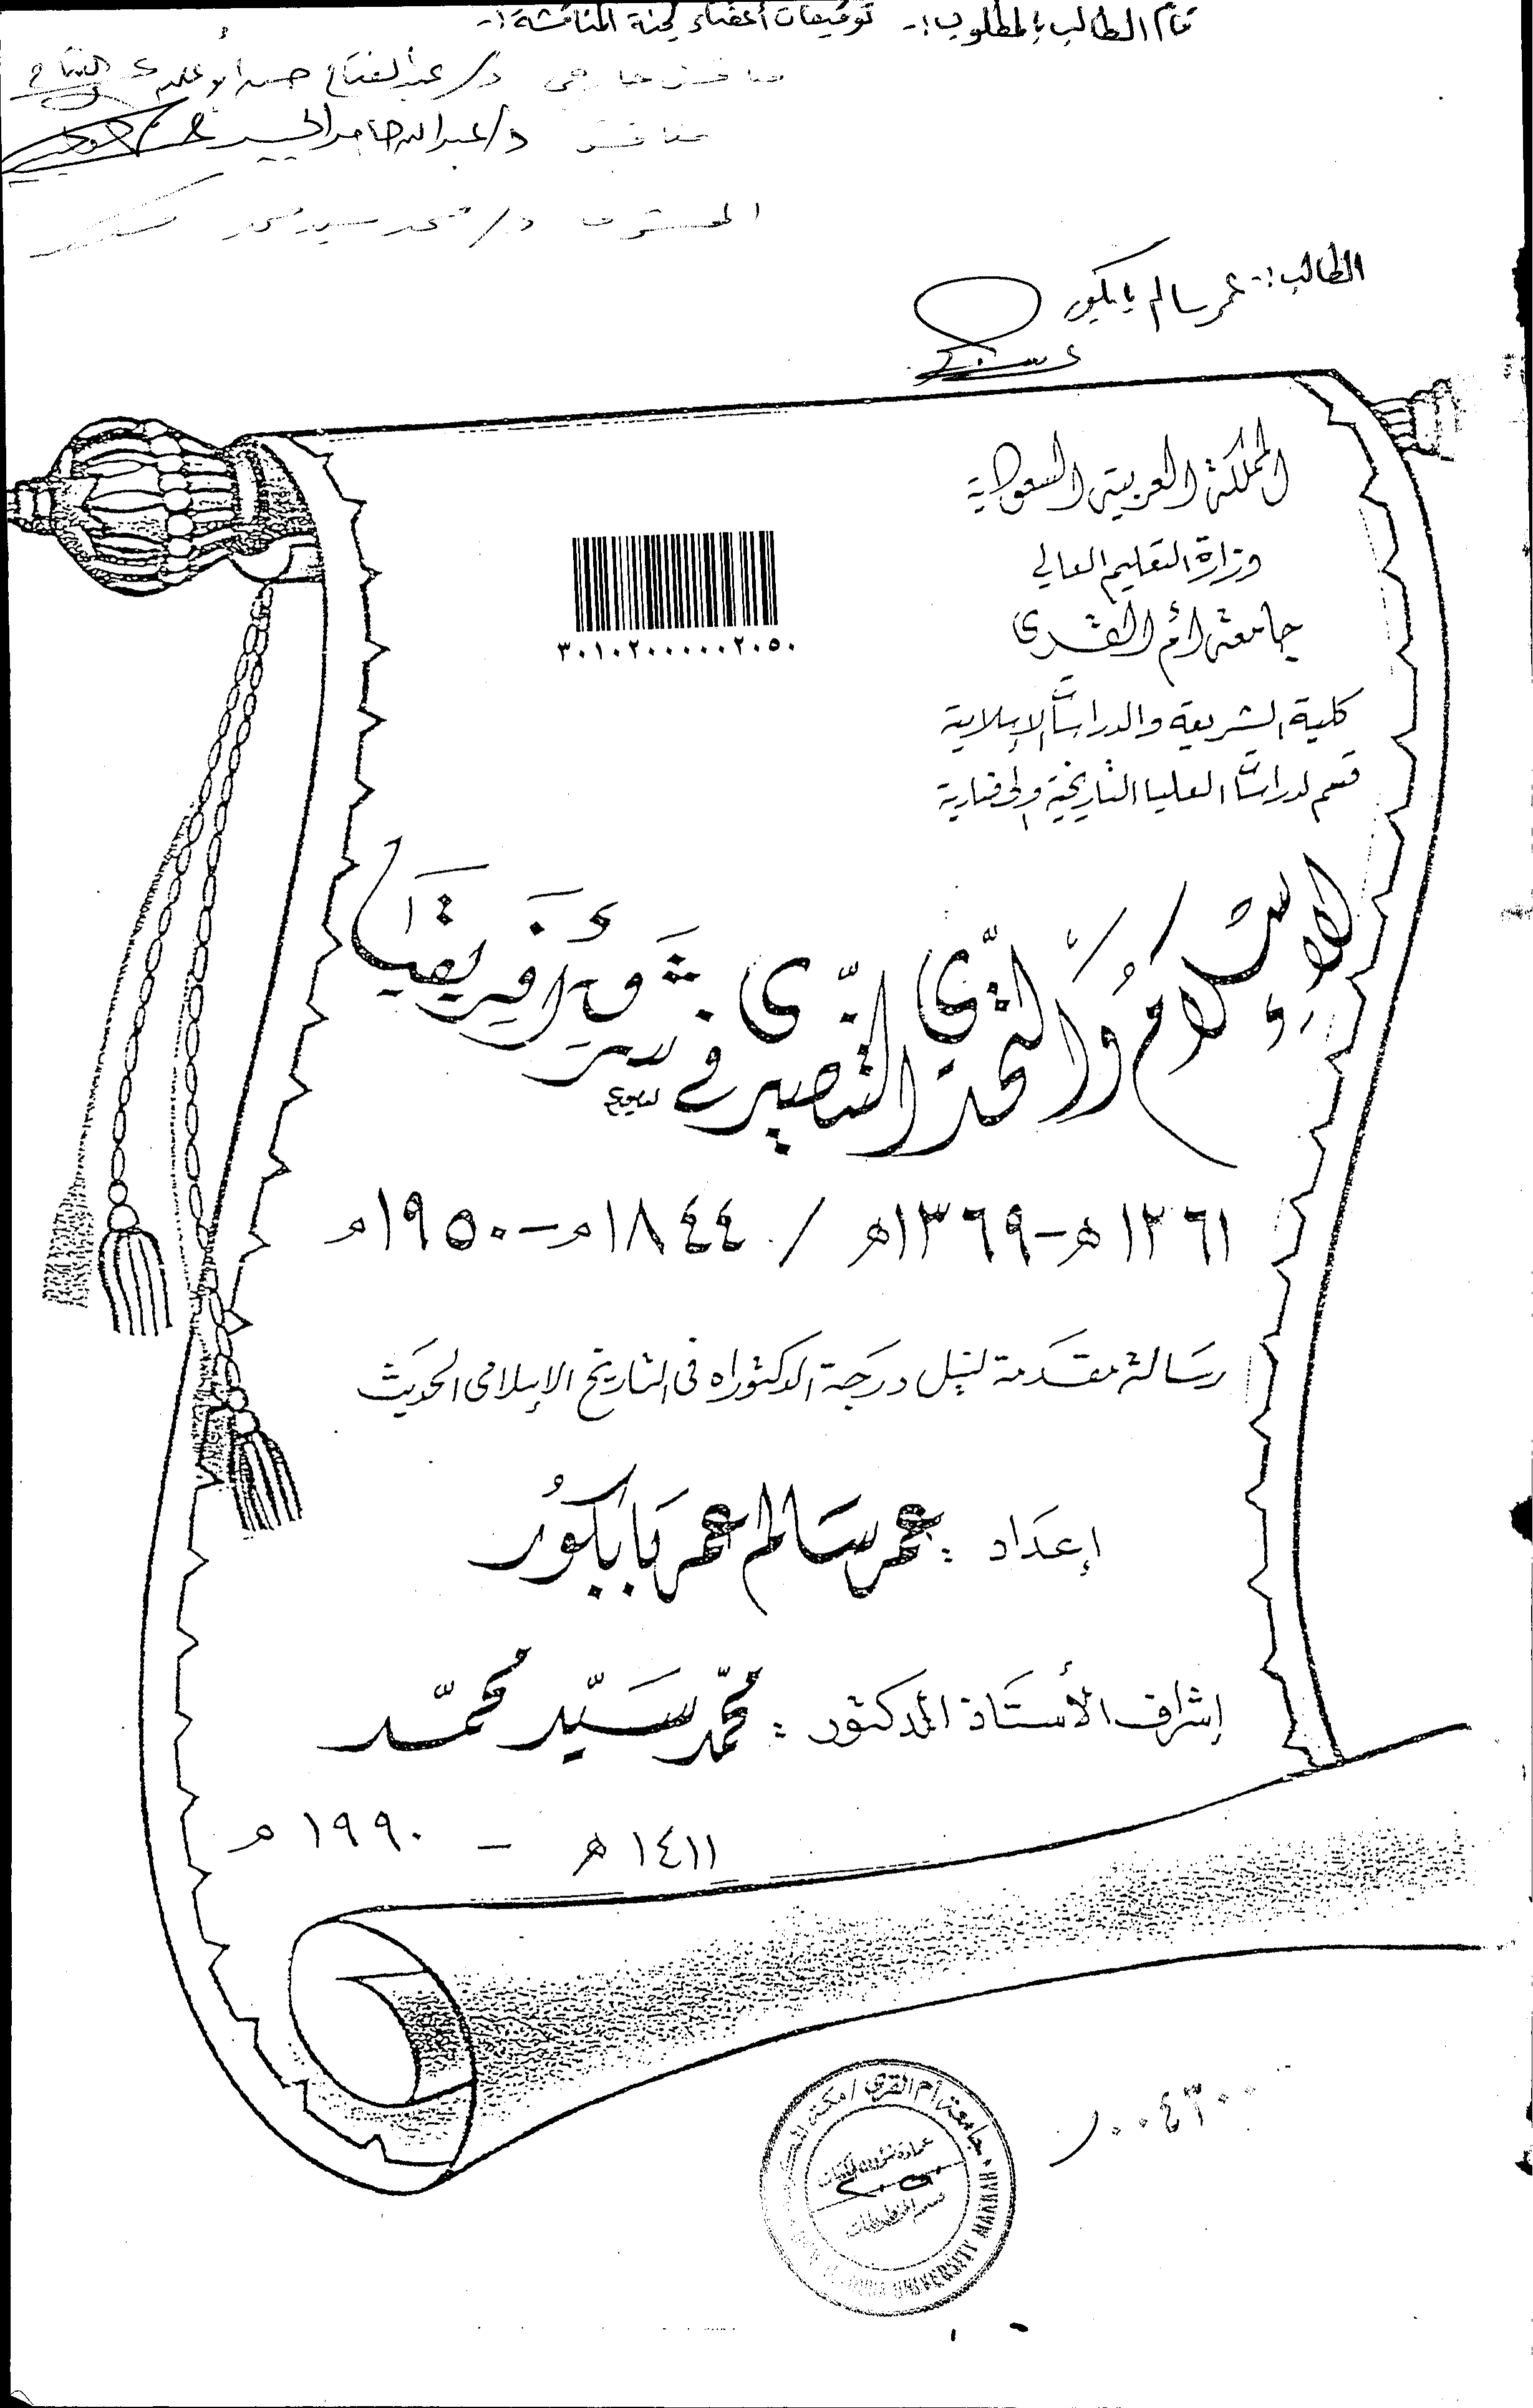 قام الطالب بالمطلوب :- توقيعات أعضاء لجنة المناقشة :-
مناقش خارجي د/ عبد الفتاح حسن أبو علية
مناقش د/ عبد الله حامد
المشرف د/ محمد سيد محمد
الطالب :- عمر سالم بابكور
المملكة العربية السعودية
وزارة التعليم العالي
جامعة أم القرى
كلية الشريعة والدراسات الإسلامية
قسم الدراسات العليا التاريخية والحضارية
٣٠١٠٢٠٠٠٠٠٢٠٥٠
الإسلام والتحدي التنصيري في شرق أفريقيا
١٢٦١هـ - ١٣٦٩هـ / ١٨٤٤م - ١٩٥٠م
رسالة مقدمة لنيل درجة الدكتوراه في التاريخ الإسلامي الحديث
إعداد : عمر سالم عمر بابكور
إشراف الأستاذ الدكتور : محمد سيد محمد
١٤١١ هـ - ١٩٩٠ م
جامعة أم القرى / مكة
عمادة شؤون المكتبات
٢٠٥٠
قسم المخطوطات
UNIVERSITY MAKKAH